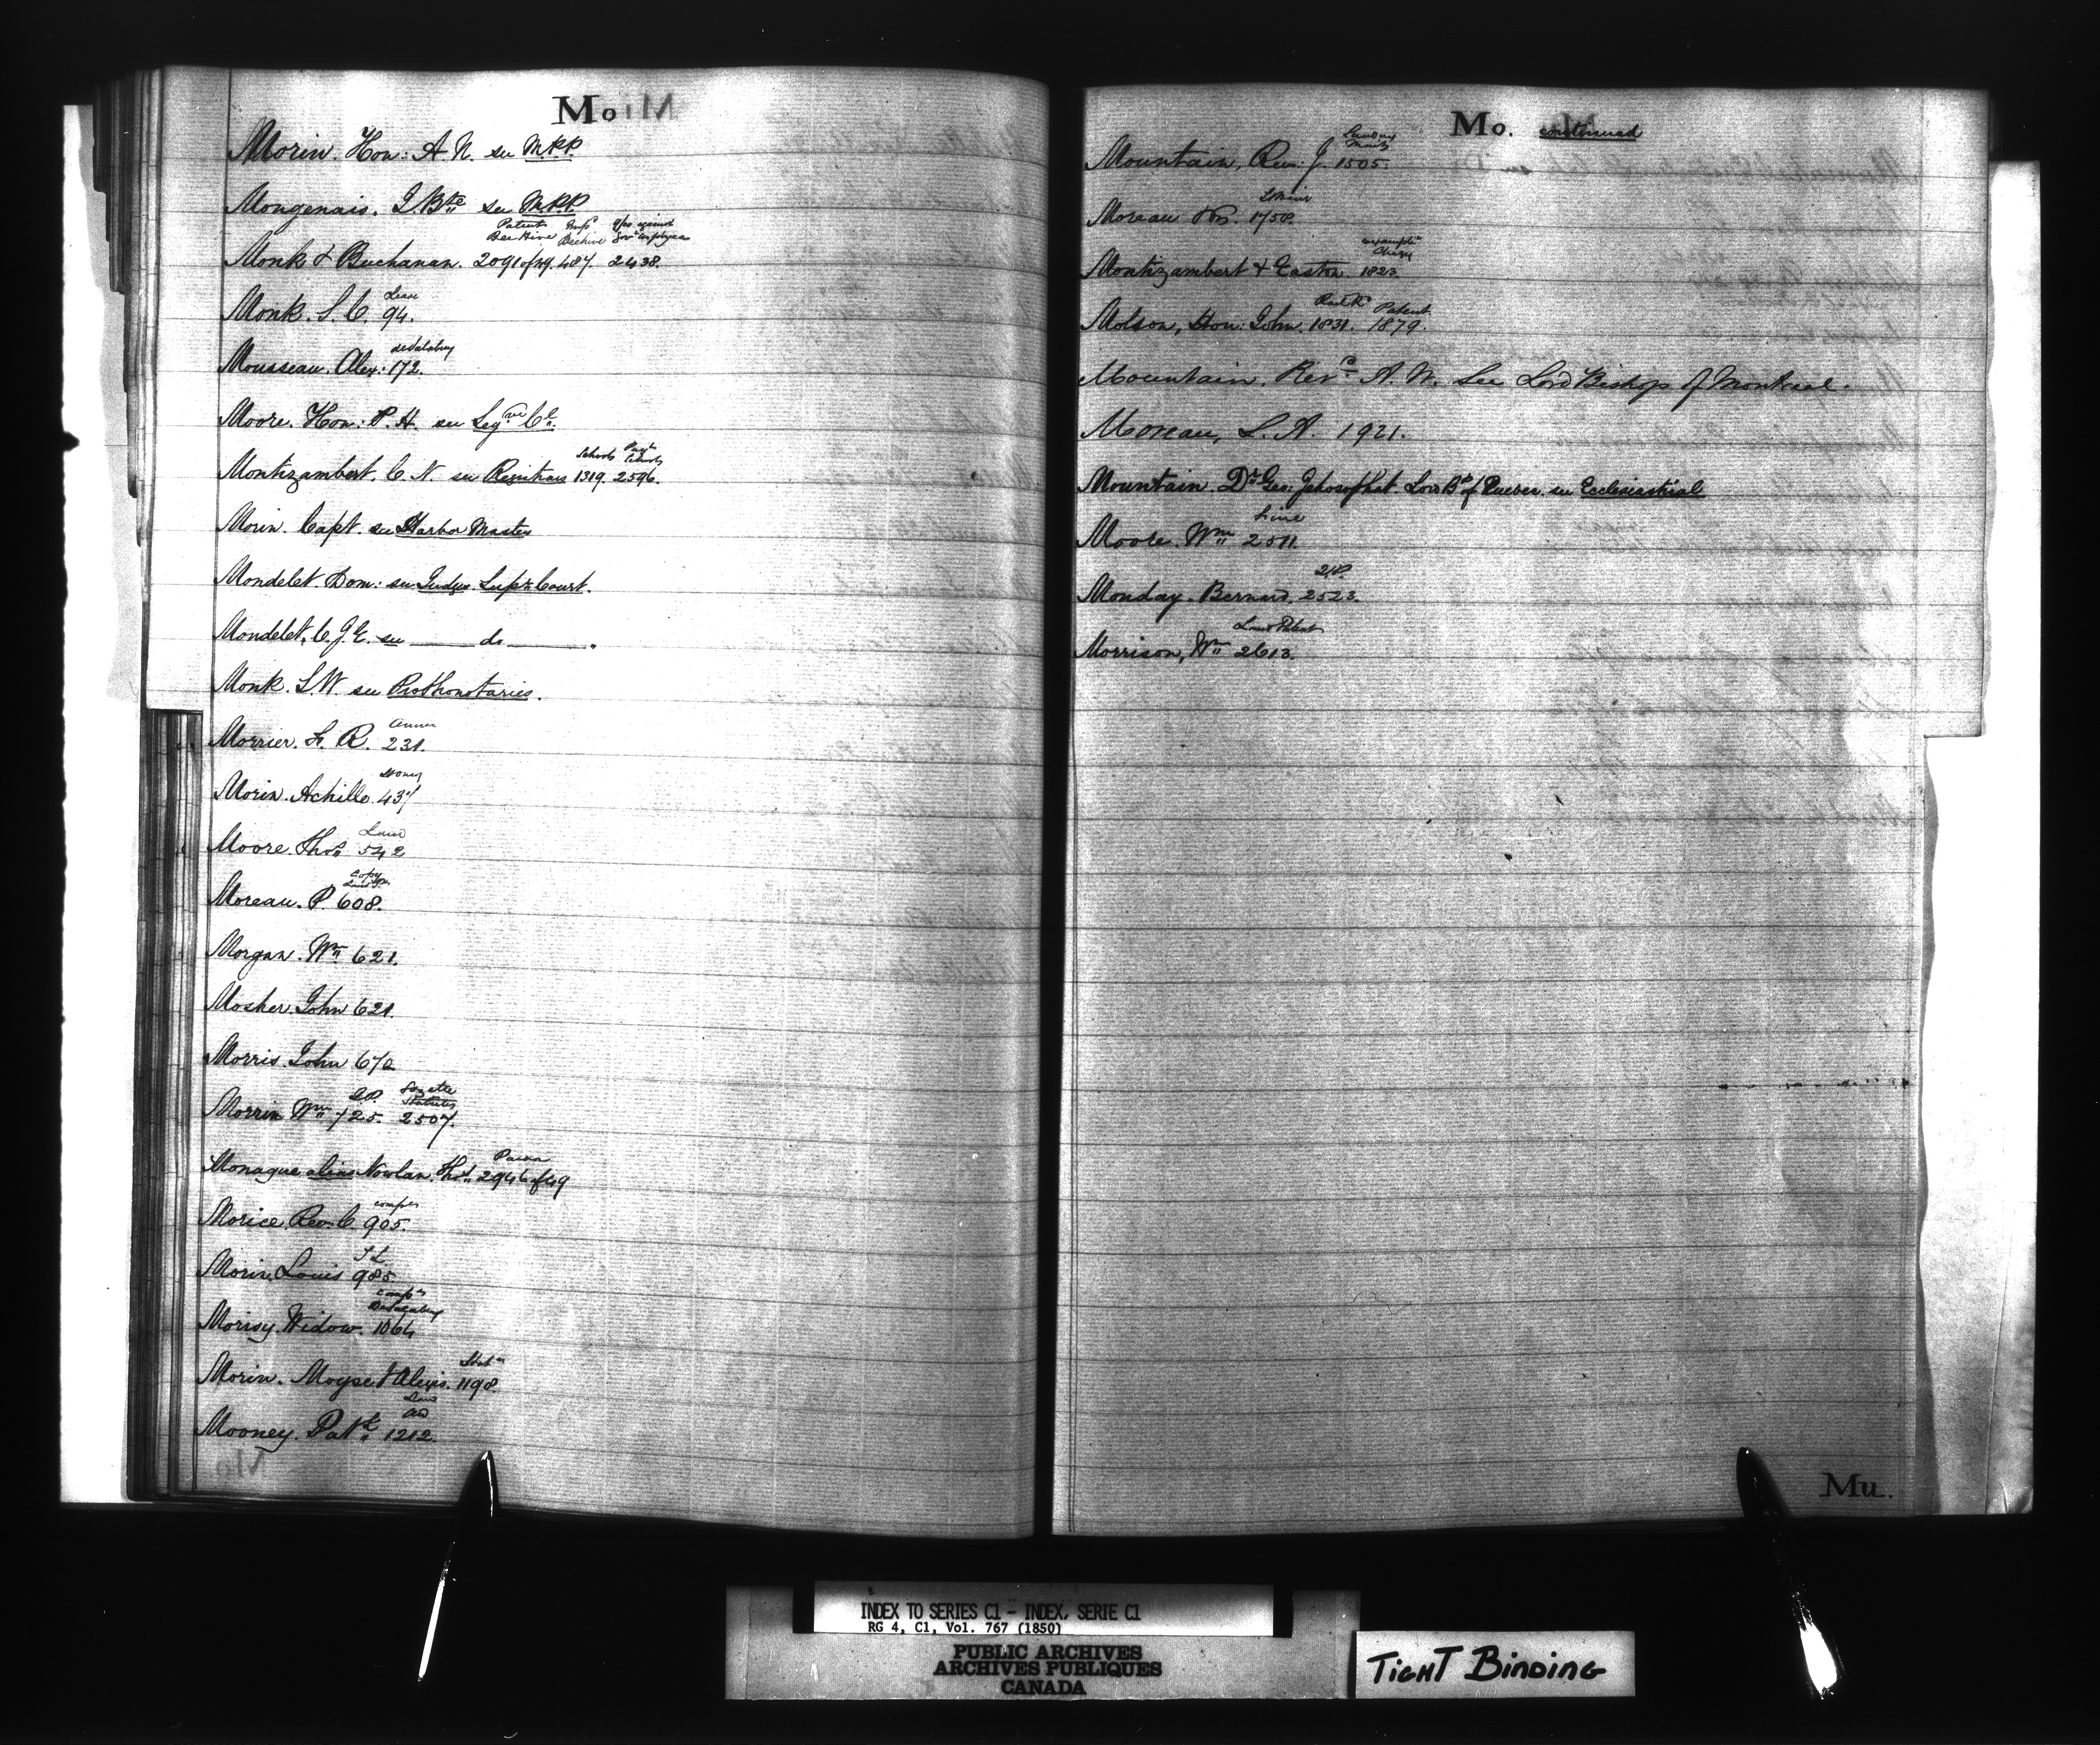 Mo
Morin. Hon: A. N. see M.P.P.
Mongenais. J. Bte see M.P.P.
Patent
Bee Hive Beehive Govt Employee
Monk & Buchanan. 2091 of 49. 487. 2438.
Lease
Monk. S. C. 94.
de Salabery
Mousseau. Alex: 172.
Moore. Hon: P. H. see Legve Cl.
Schools Schools
Montizambert. C. N. see Registrars 1319. 2596.
Morin. Capt. see Harbor Master
Mondelet Dom: see Judges Supr Court.
Mondelet, C. J. E. see do
Monk. S. W. see Prothonotaries.
Morrier. L. R. 231.
Morin. Achille. 437
Land
Moore. Thos 542
Copy
Moreau. P. 608.
Morgan. Wm 621.
Mosher. John 621.
Morris. John 672
Gazette
Statutes
Morrin Wm 725. 2507.
Monague alias Nowlan. Thos 2946 of 49
Morice. Revd C. 905.
Morin. Louis 985
Morisy. Widow. 1064
Morin. Moyse & Alexis. 1198.
Mooney. Patk 1212.
Mo. continued
Mountain, Rev: J. 1505.
Moreau 1758.
Montizambert & Easton. 1823.
Patent
Molson, Hon: John. 1831. 1879.
Mountain. Revd A. W. See Lord Bishop of Montreal.
Moreau, L. A. 1921.
Mountain. Dr Geo: Jehosophat. Lord Bp of Quebec. see Ecclesiastical
Moore. Wm 2011.
Monday. Bernard. 2523.
Land Patent
Morrison, Wm 2613.
Mu.
INDEX TO SERIES C1 - INDEX, SERIE C1
RG 4, C1, Vol. 767 (1850)
PUBLIC ARCHIVES
ARCHIVES PUBLIQUES
CANADA
TIGHT BINDING